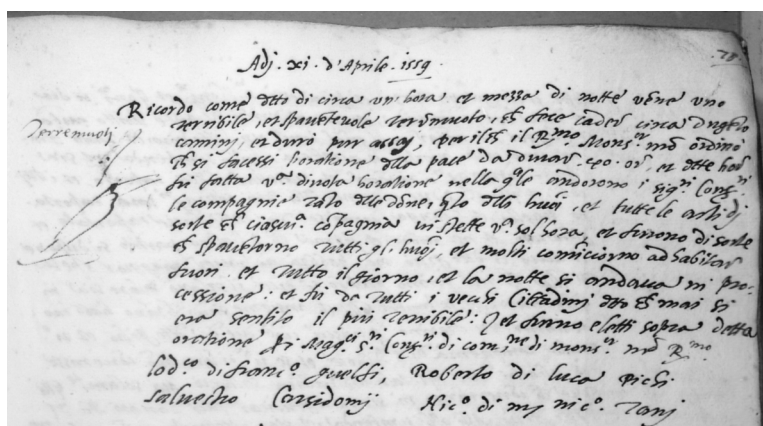 Adj . xi . d'Aprile . 1559 .
78
Terremuoti
Ricordo come dto di circa un hora et mezza di notte venne uno
terribile, et spauetevole terremuoto, fece cader circa
camini, et durò pur assaj, per il il R.mo Mons.r ordinò
si facessi horatione della pace da durar et dette
fu fatta v.a divota horatione nella q.le andorono i sig.ri
le compagnie tato delle done, q.to delli huoj, et tutte le arti dj
sorte ciascu.a copagnia vi stette v.a sol hora, et furono di sorte
spauetorno tutti gl' huoj, et molti comiciorno ad habitar
fuori, et tutto il giorno, et la notte si andava in pro-
cessione, et fu da tutti i vechi Cittadinj dto mai si
era sentito il più terribile: et furno eletti sopra detta
oratione di com.ne di mons.r R.mo
lod.co di franc.o guelfi, Roberto di luca pichi
Salvestro Nic.o di nic.o